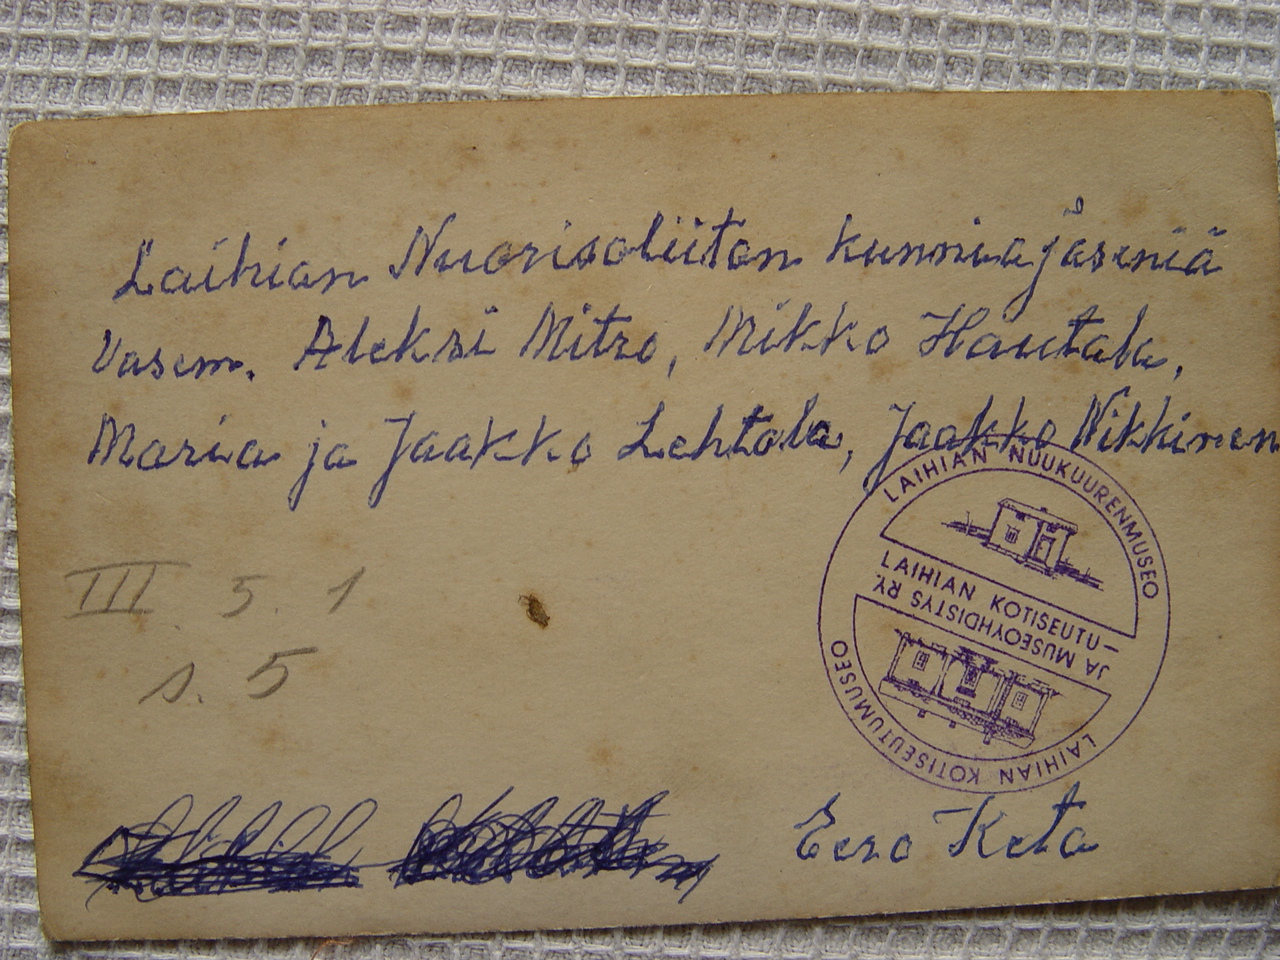 Laihian Nuorisoliiton kunniajäseniä
Vasem. Aleksi Mitro, Mikko Hautala,
Maria ja Jaakko Lehtala, Jaakko Nikkinen
LAIHIAN NUUKUURENMUSEO
LAIHIAN KOTISEUTU-
JA MUSEOYHDISTYS RY.
LAIHIAN KOTISEUTUMUSEO
III 5. 1
s. 5
Eero Keta